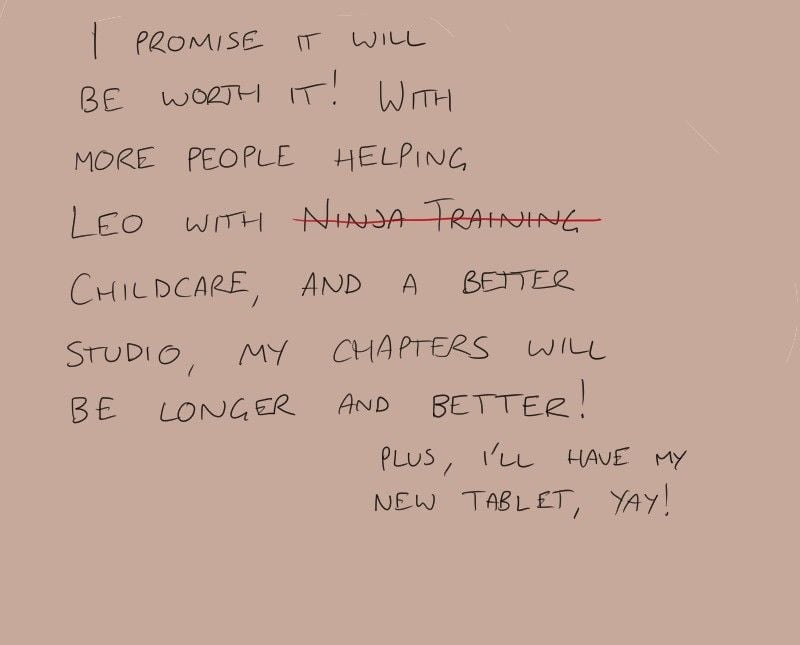 I PROMISE IT WILL
BE WORTH IT! WITH
MORE PEOPLE HELPING
LEO WITH NINJA TRAINING
CHILDCARE, AND A BETTER
STUDIO, MY CHAPTERS WILL
BE LONGER AND BETTER!
PLUS, I'LL HAVE MY
NEW TABLET, YAY!